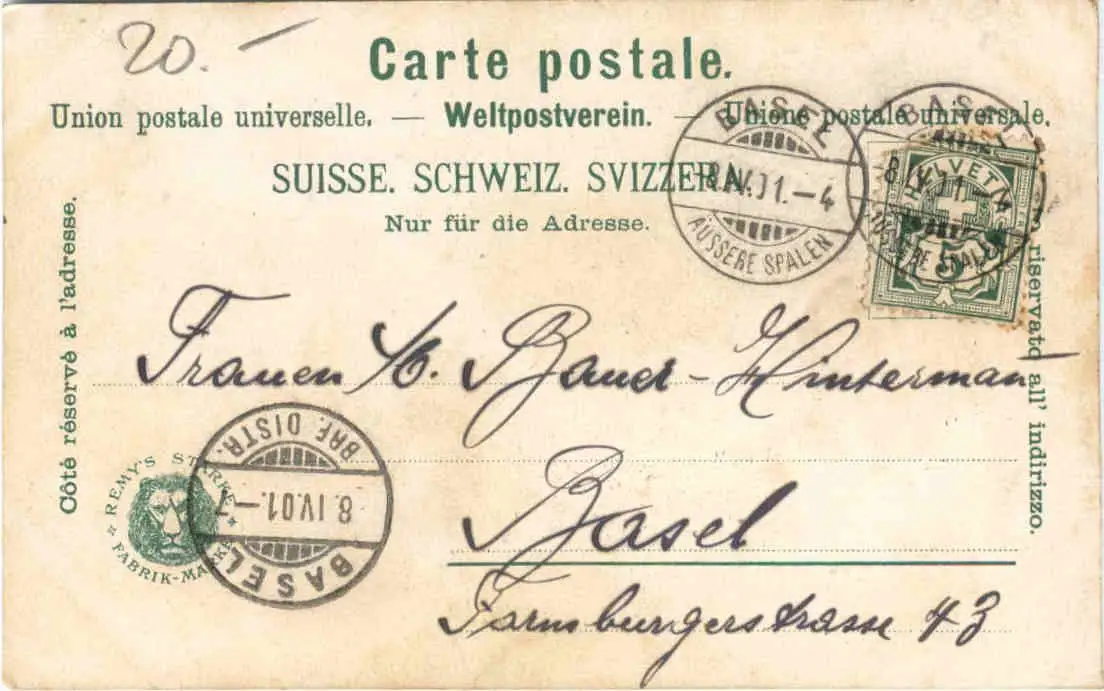 20.—
Carte postale.
Union postale universelle. — Weltpostverein. — Unione postale universale.
SUISSE. SCHWEIZ. SVIZZERA.
Nur für die Adresse.
Côté réservé à l'adresse.
riservato all' indirizzo.
BASEL
-8.IV.01.-4
ÄUSSERE SPALEN
BASEL
-8.IV.01.-4
ÄUSSERE SPALEN
HELVETIA
5
Frauen
Hinterman
Basel
Farnsburgerstrasse 43
REMY'S STÄRKE
FABRIK-MARKE
BASEL
8.IV.01.-7
BRF. DISTR.